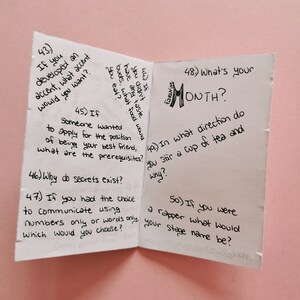 43)
If you
developed an
accent, what accent
would you want?
45) If
someone wanted
to apply for the position
of being your best friend,
what are the prerequisites?
46) Why do secrets exist?
47) If you had the choice
to communicate using
numbers only or words only
which would you choose?
48) What's your
favourite
MONTH?
49) In what direction do
you stir a cup of tea and
why?
50) If you were
a rapper what would
your stage name be?